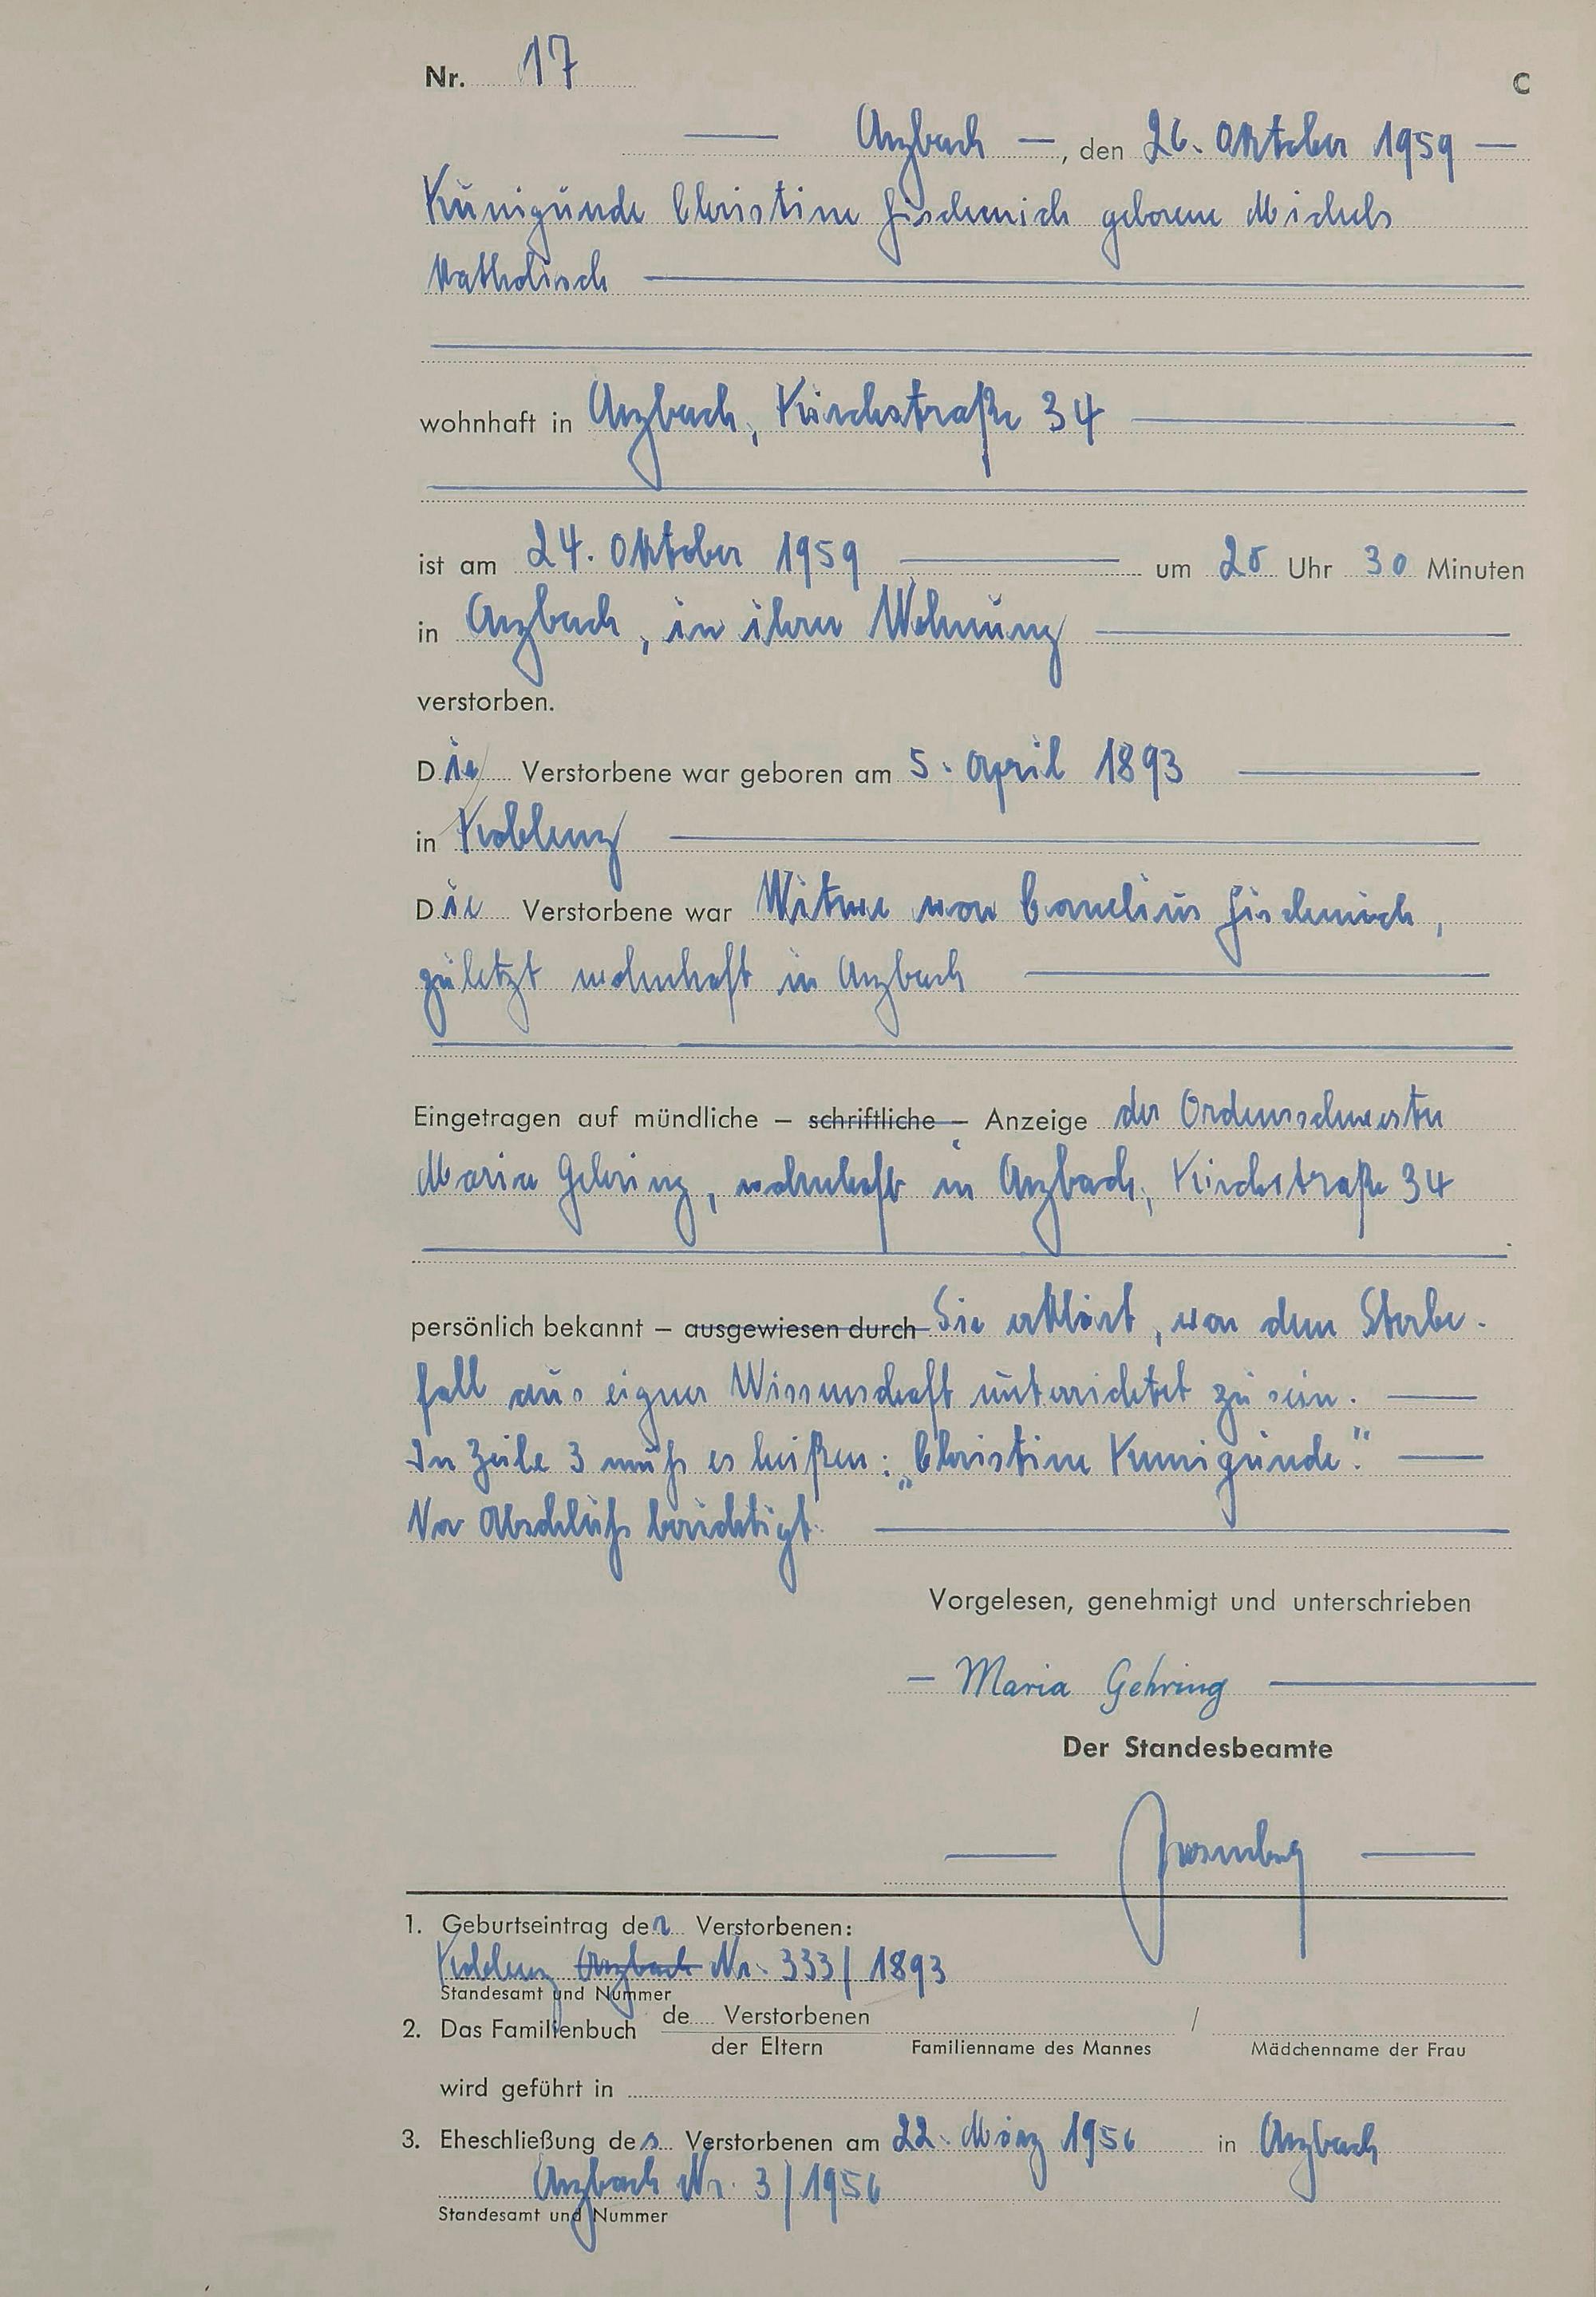 Nr. 17
C
Arzbach —, den 26. Oktober 1959 —
Kunigunde Christine Fischenich geborene Michels
katholisch
wohnhaft in Arzbach, Kirchstraße 34
ist am 24. Oktober 1959 um 20 Uhr 30 Minuten
in Arzbach, in ihrer Wohnung
verstorben.
Die Verstorbene war geboren am 5. April 1893
in Koblenz
Die Verstorbene war Witwe von Cornelius Fischenich,
zuletzt wohnhaft in Arzbach
Eingetragen auf mündliche – schriftliche – Anzeige der Ordensschwester
Maria Gehring, wohnhaft in Arzbach, Kirchstraße 34
persönlich bekannt – ausgewiesen durch Sie erklärt, von dem Sterbe-
fall aus eigner Wissenschaft unterrichtet zu sein. —
In Zeile 3 muß es heißen: „Christine Kunigunde". —
Vor Abschluß berichtigt.
Vorgelesen, genehmigt und unterschrieben
— Maria Gehring
Der Standesbeamte
1. Geburtseintrag der Verstorbenen:
Koblenz Arzbach Nr. 333/1893
Standesamt und Nummer
2. Das Familienbuch de Verstorbenen /
der Eltern Familienname des Mannes Mädchenname der Frau
wird geführt in
3. Eheschließung der Verstorbenen am 22. März 1956 in Arzbach
Arzbach Nr. 3/1956
Standesamt und Nummer